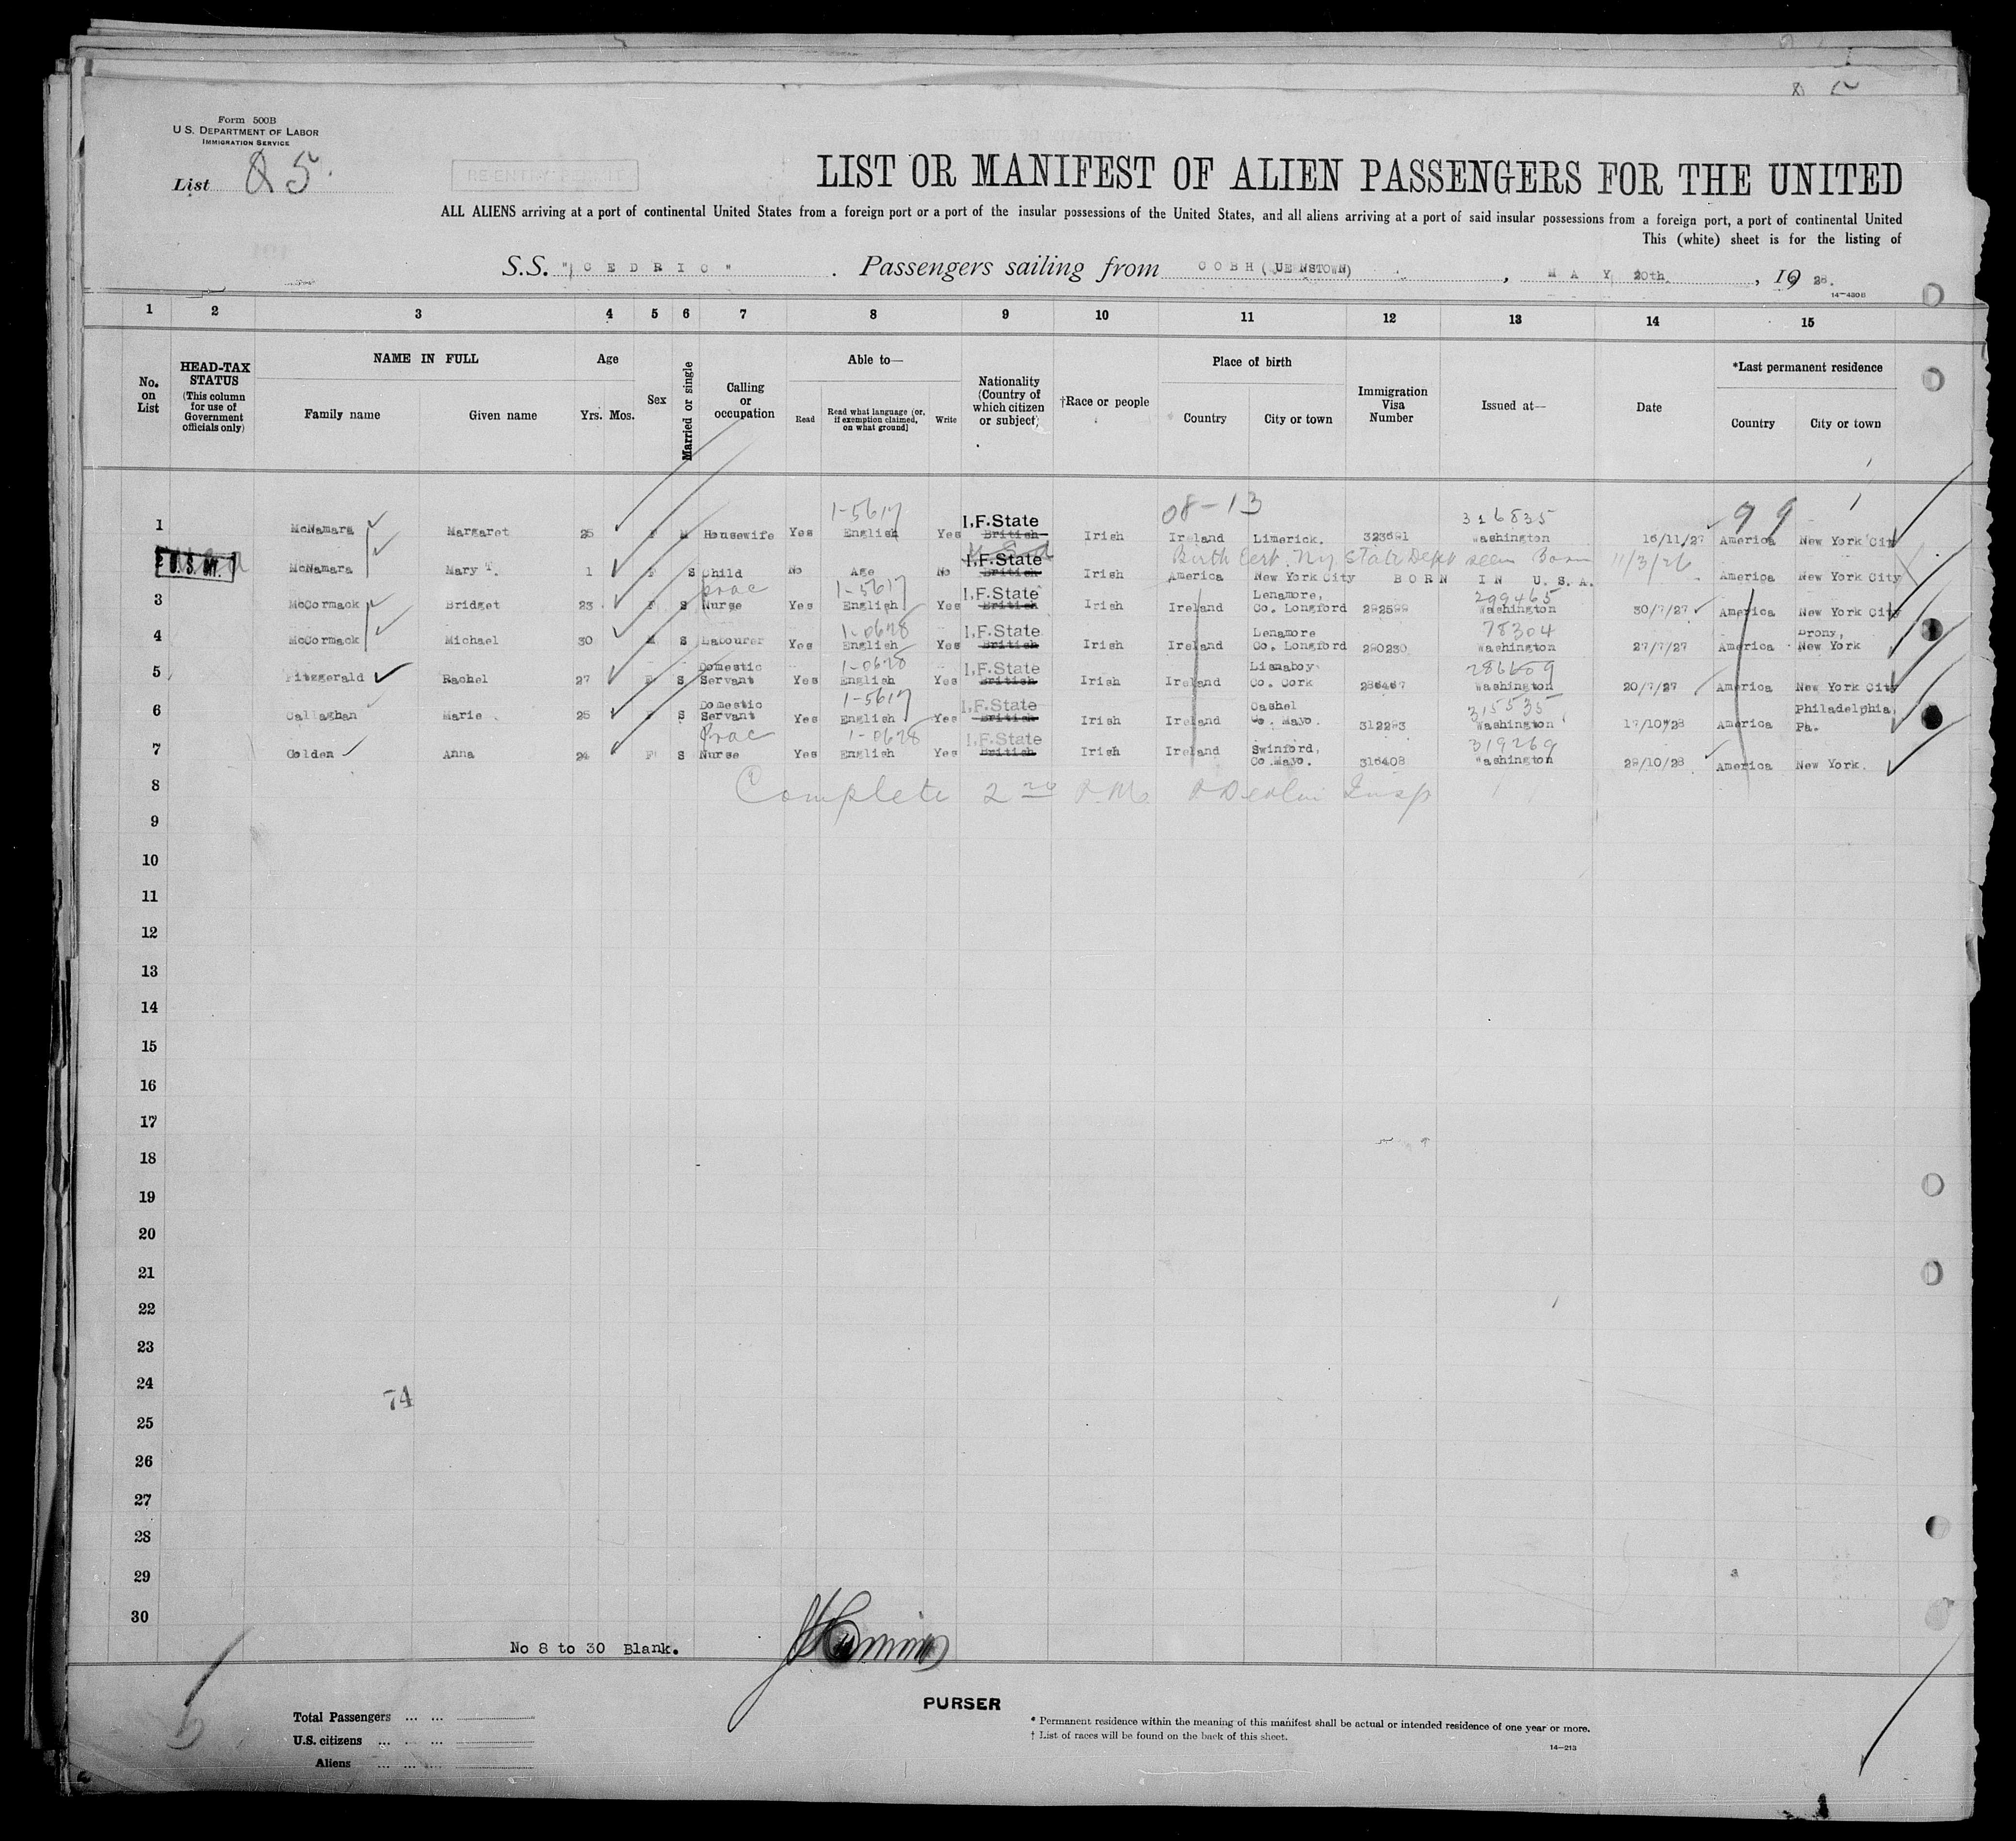 Form 500B
U.S. DEPARTMENT OF LABOR
IMMIGRATION SERVICE
List 85.
RE-ENTRY PERMIT
LIST OR MANIFEST OF ALIEN PASSENGERS FOR THE UNITED
ALL ALIENS arriving at a port of continental United States from a foreign port or a port of the insular possessions of the United States, and all aliens arriving at a port of said insular possessions from a foreign port, a port of continental United
This (white) sheet is for the listing of
S.S. "CEDRIC". Passengers sailing from COBH (QUEENSTOWN), MAY 20th, 1928.
14-430B
1 2 3 4 5 6 7 8 9 10 11 12 13 14 15
No. on List
HEAD-TAX STATUS (This column for use of Government officials only)
NAME IN FULL
Family name Given name
Age
Yrs. Mos.
Sex
Married or single
Calling or occupation
Able to—
Read Read what language [or, if exemption claimed, on what ground] Write
Nationality (Country of which citizen or subject)
†Race or people
Place of birth
Country City or town
Immigration Visa Number
Issued at—
Date
*Last permanent residence
Country City or town
1-5617 08-13 316835 99
1 McNamara Margaret 25 F M Housewife Yes English Yes I.F.State British Irish Ireland Limerick. 323691 Washington 16/11/27 America New York City
Birth Cert. NY State Dept seen Born 11/3/26
2 U.S. McNamara Mary T. 1 F S Child No Age No I.F.State British Irish America New York City BORN IN U.S.A. America New York City
prac 1-5617 299465
3 McCormack Bridget 23 F S Nurse Yes English Yes I.F.State British Irish Ireland Lenamore, Co. Longford 292599 Washington 30/7/27 America New York City
1-0628 78304
4 McCormack Michael 30 M S Labourer Yes English Yes I.F.State British Irish Ireland Lenamore Co. Longford 290230 Washington 27/7/27 America Bronx, New York
1-0628 286609
5 Fitzgerald Rachel 27 F S Domestic Servant Yes English Yes I.F.State British Irish Ireland Lisnaboy Co. Cork 286467 Washington 20/7/27 America New York City
1-5617 315535
6 Callaghan Marie 25 F S Domestic Servant Yes English Yes I.F.State British Irish Ireland Cashel Co. Mayo. 312293 Washington 17/10/28 America Philadelphia Pa.
Prac 1-0628 319269
7 Golden Anna 24 F S Nurse Yes English Yes I.F.State British Irish Ireland Swinford, Co.Mayo. 316408 Washington 29/10/28 America New York.
8 Complete 2nd Insp
9
10
11
12
13
14
15
16
17
18
19
20
21
22
23
24
74
25
26
27
28
29
30
No 8 to 30 Blank.
PURSER
Total Passengers ... ...
U.S. citizens ... ... ...
Aliens ... ... ...
* Permanent residence within the meaning of this manifest shall be actual or intended residence of one year or more.
† List of races will be found on the back of this sheet.
14-213